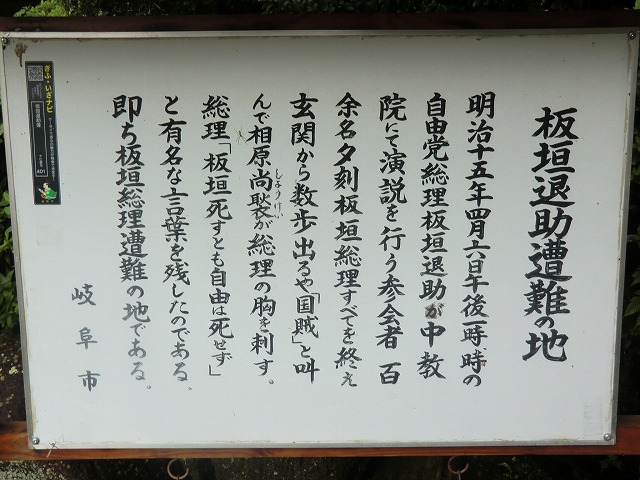 板垣退助遭難の地
明治十五年四月六日午後一時、時の
自由党総理板垣退助が中教
院にて演説を行う参会者 百
余名夕刻板垣総理すべてを終え
玄関から数歩出るや「国賊」と叫
んで相原尚褧が総理の胸を刺す。
しょうけい
総理「板垣死すとも自由は死せず」
と有名な言葉を残したのである。
即ち板垣総理遭難の地である。
岐阜市
ぎふ・いざナビ
401